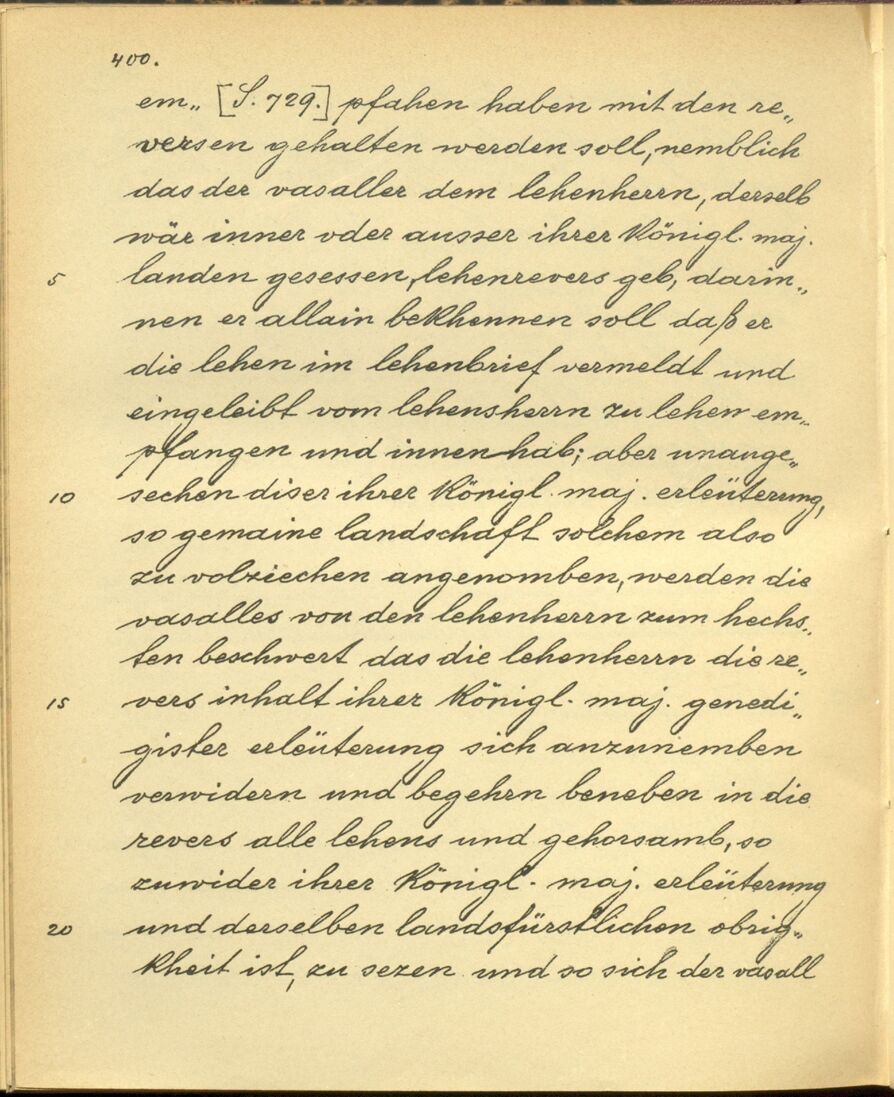 400.
em„ [S. 729.] pfahen haben mit den re„
versen gehalten werden soll, nemblich
das der vasaller dem lehenherrn, derselb
wär inner oder ausser ihrer Königl. maj.
5 landen gesessen, lehenrevers geb, darin„
nen er allain bekhennen soll daß er
die lehen im lehenbrief vermeldt und
eingeleibt vom lehensherrn zu lehen em„
pfangen und innen hab; aber unange„
10 sechen diser ihrer Königl. maj. erleüterung,
so gemaine landschaft solchem also
zu volziechen angenomben, werden die
vasalles von den lehenherrn zum hechs„
ten beschwert das die lehenherrn die re„
15 vers inhalt ihrer Königl. maj. genedi„
gister erleüterung sich anzunemben
verwidern und begehrn beneben in die
revers alle lehens und gehorsamb, so
zuwider ihrer Königl. maj. erleüterung
20 und derselben landsfürstlichen obrig„
kheit ist, zu sezen und so sich der vasall